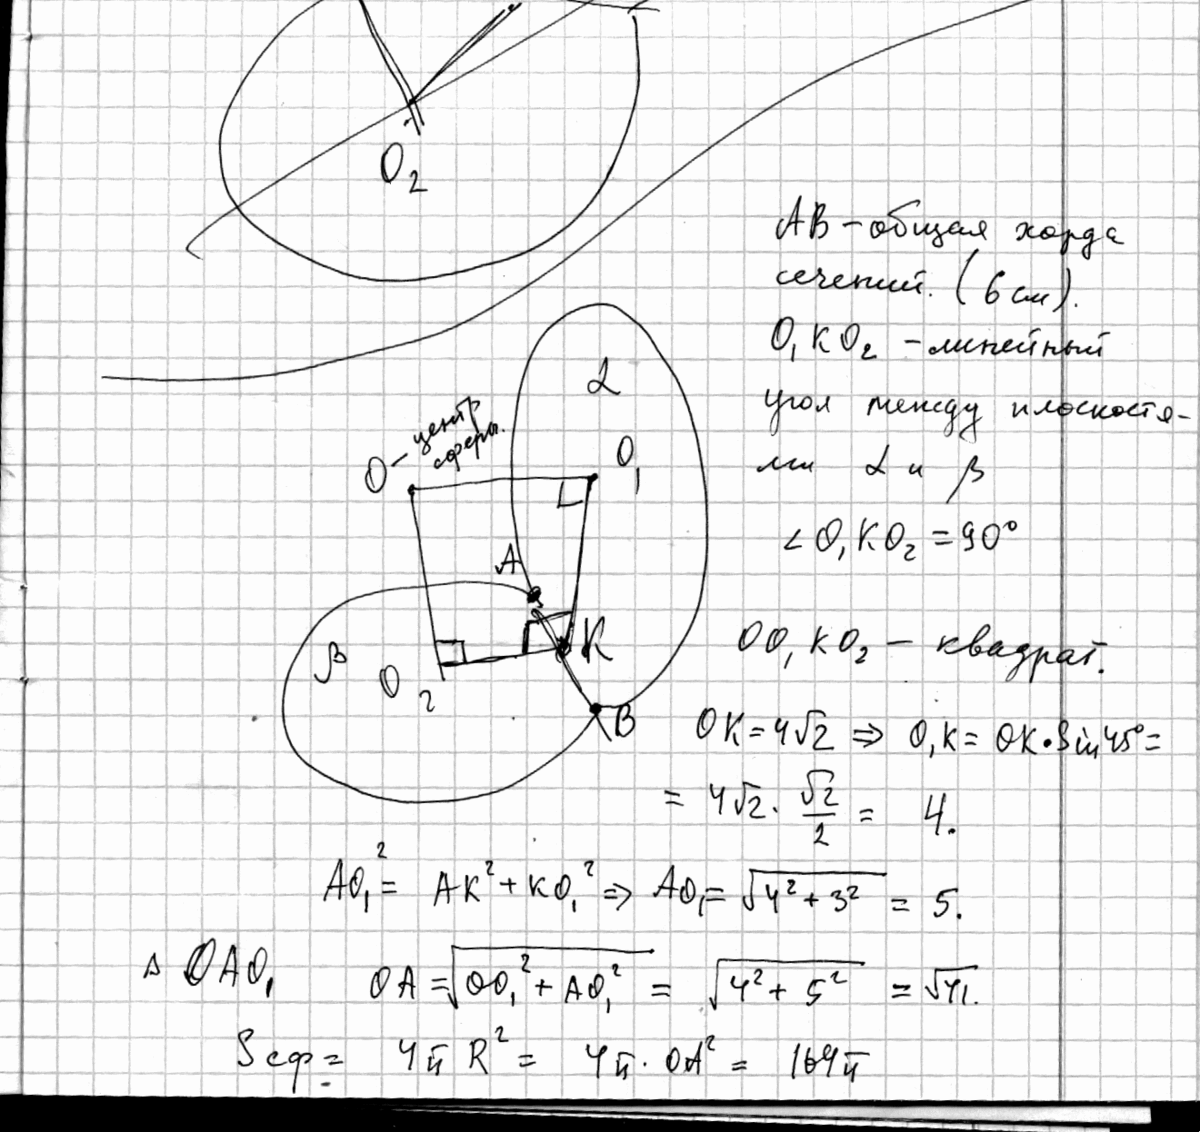 O₂
AB – общая хорда
сечений. (6 см).
O₁KO₂ – линейный
угол между плоскостя-
ми α и β
∠O₁KO₂ = 90°
α
O – центр
сферы.
O₁
A
β
O₂
K
B
OO₁KO₂ – квадрат.
OK = 4√2 ⇒ O₁K = OK·Sin45° =
= 4√2 · √2/2 = 4.
AO₁² = AK² + KO₁² ⇒ AO₁ = √(4² + 3²) = 5.
△ OAO₁ OA = √(OO₁² + AO₁²) = √(4² + 5²) = √41.
Sсф = 4π R² = 4π · OA² = 164π